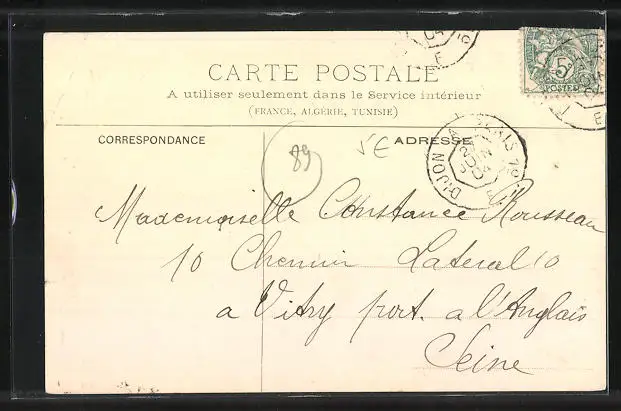 CARTE POSTALE
A utiliser seulement dans le Service intérieur
(FRANCE, ALGÉRIE, TUNISIE)
CORRESPONDANCE
ADRESSE
89
5
POSTES
DIJON A PARIS 1º
04
E
Mademoiselle Constance Rousseau
10 Chemin Lateral 10
a Vitry port. a l'Anglais
Seine